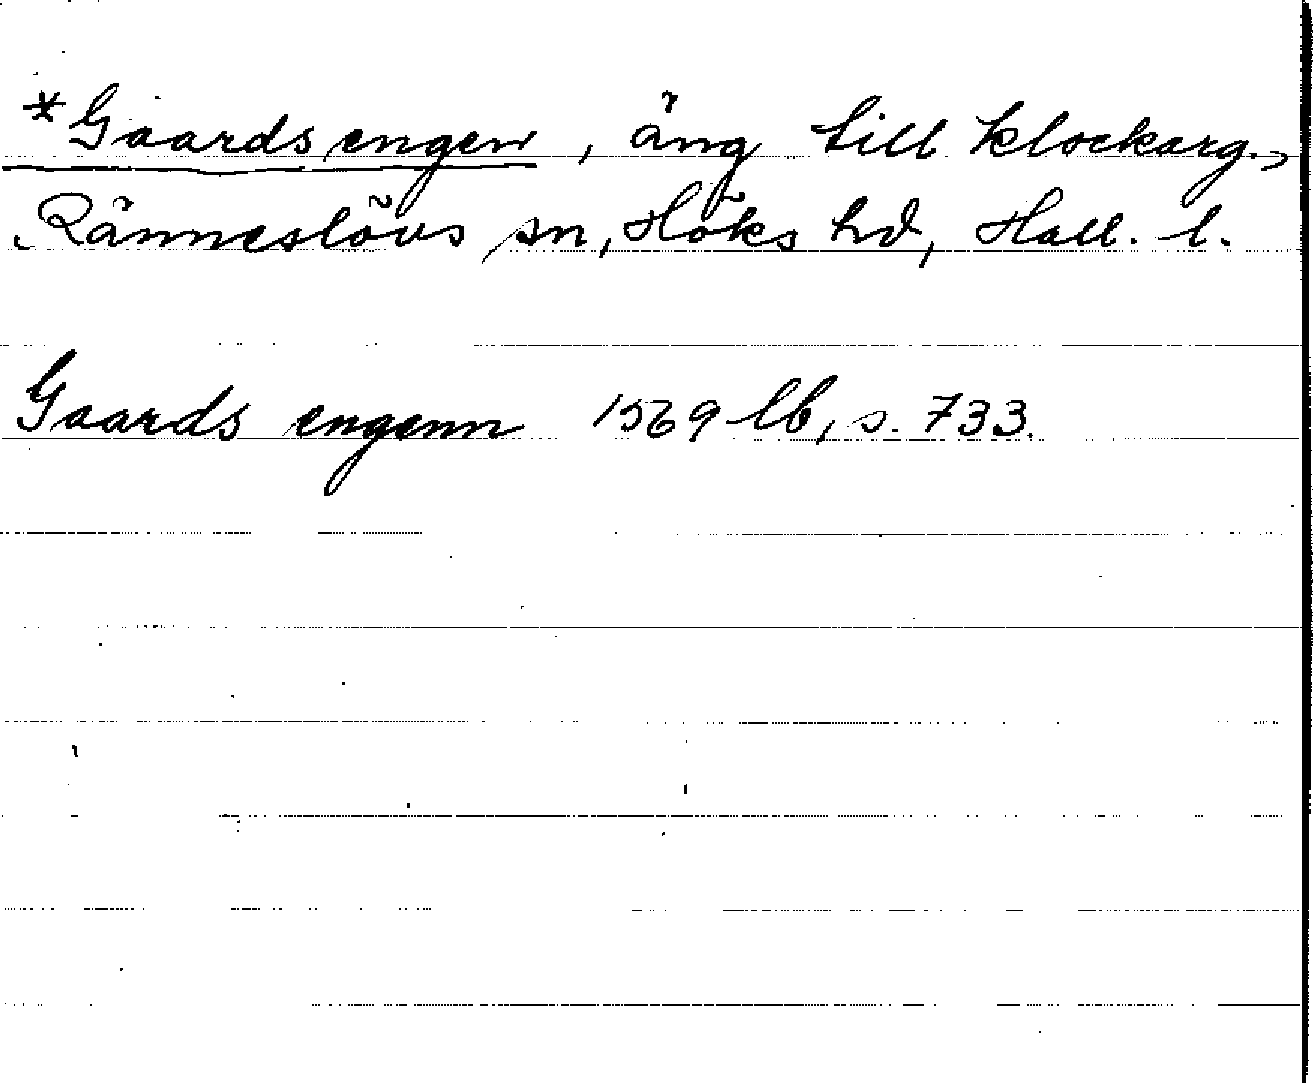 *Gaards engen, äng till klockarg.,
Ränneslövs sn, Höks hd, Hall. l.
Gaards engenn 1569 lb, s. 733.